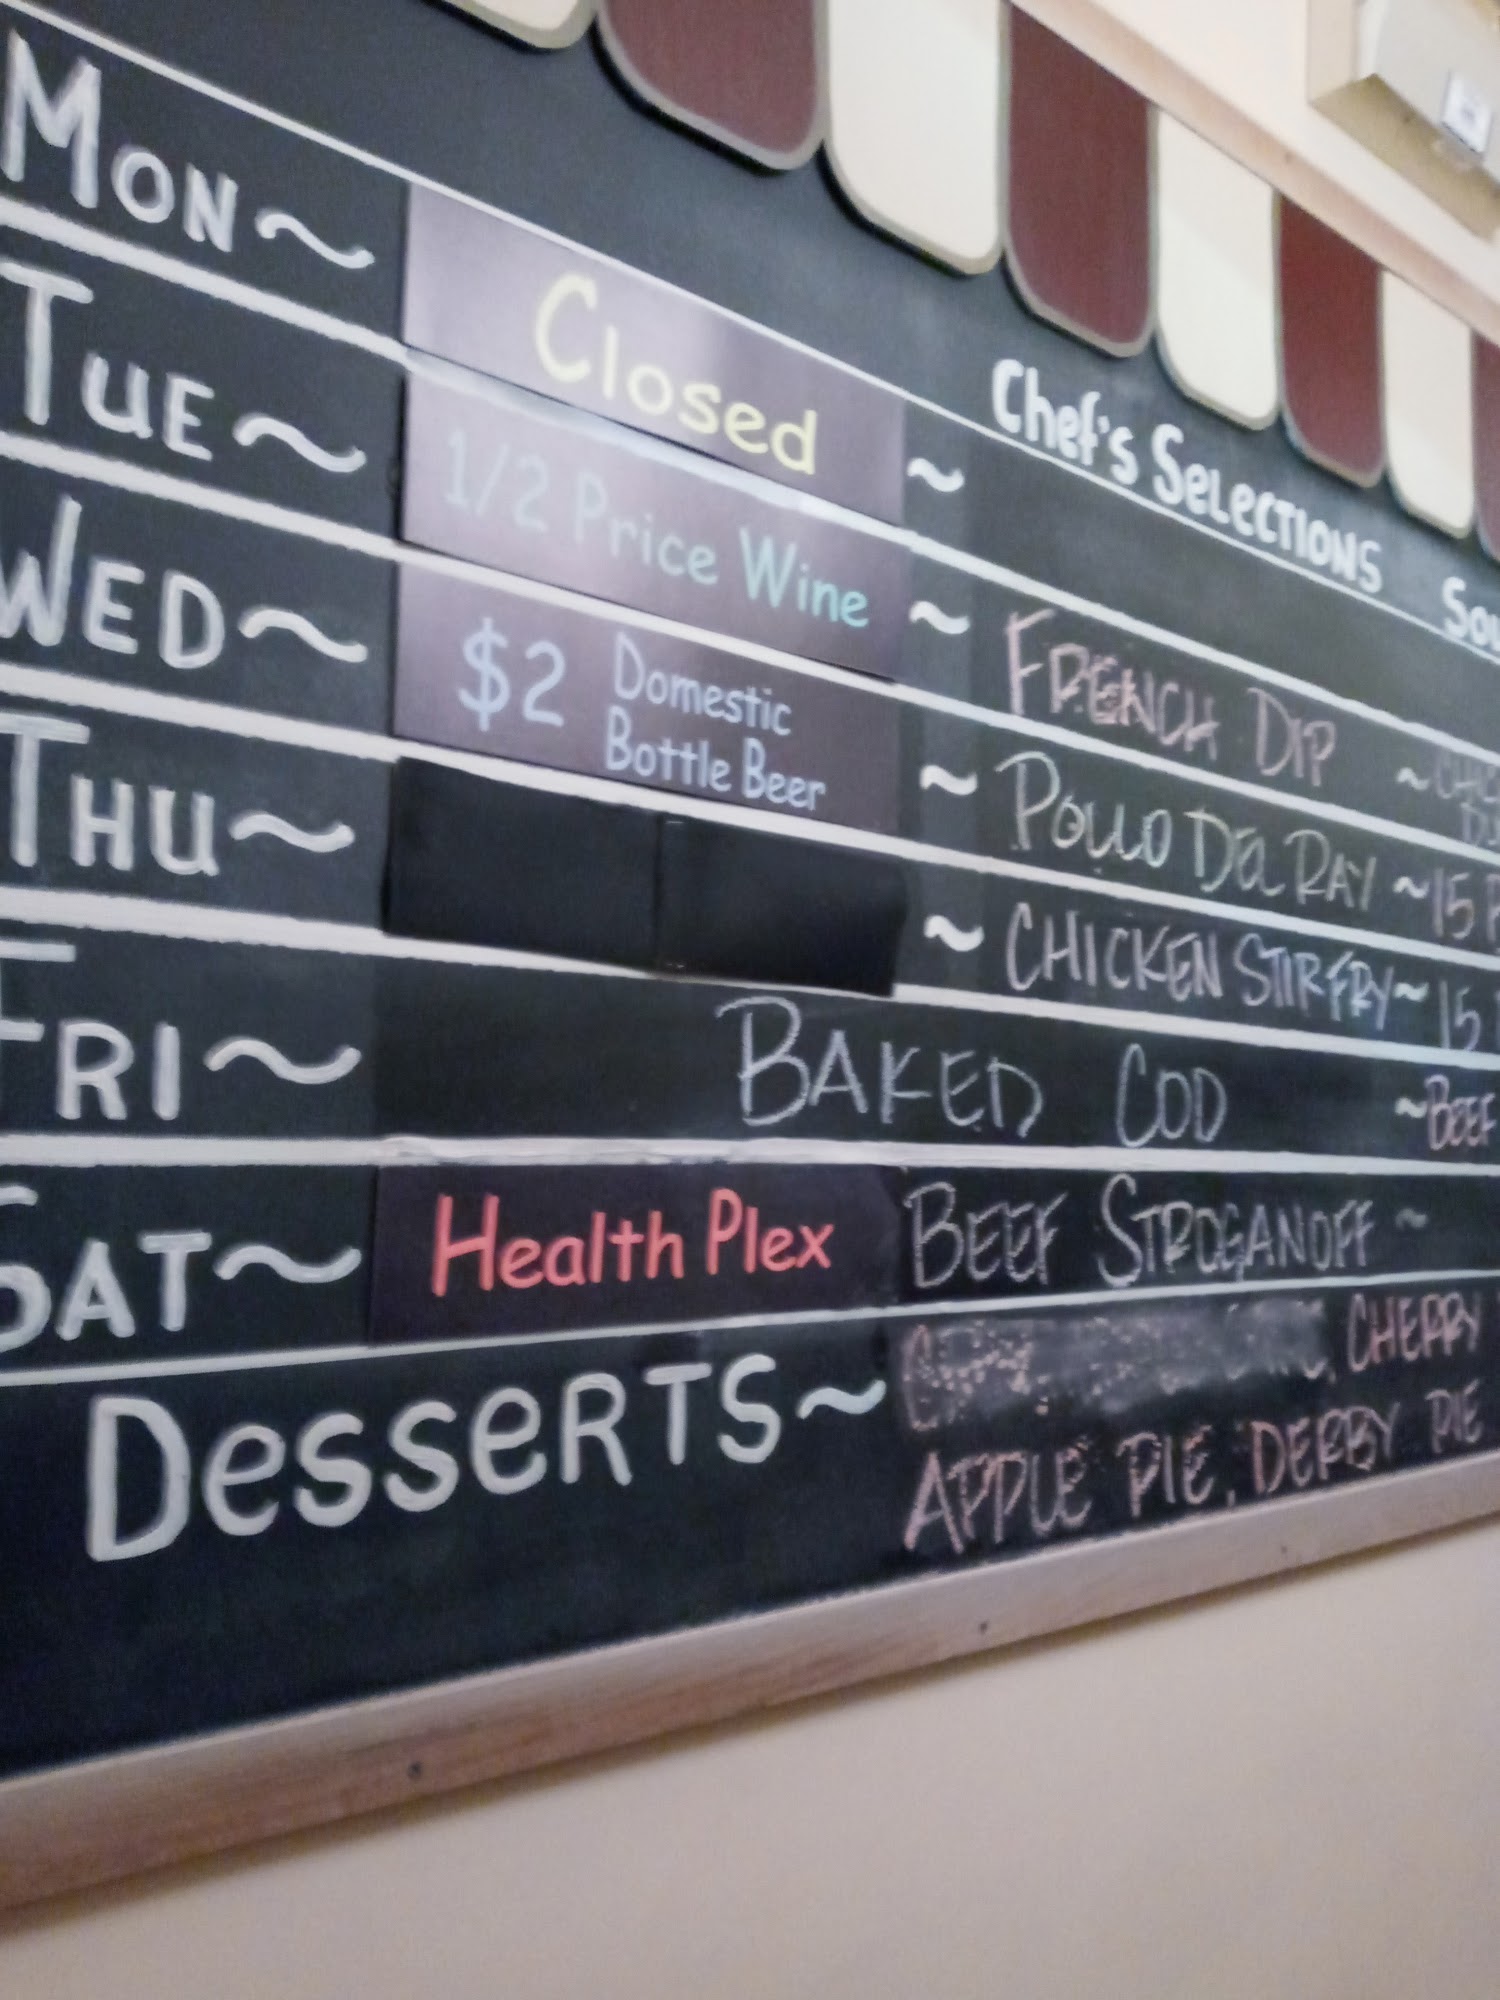 Chef's Selections
Mon ~ Closed ~
Tue ~ 1/2 Price Wine ~ French Dip ~
Wed ~ $2 Domestic Bottle Beer ~ Pollo Del Ray ~ 15
Thu ~ ~ Chicken Stir Fry ~ 15
Fri ~ Baked Cod ~ Beef
Sat ~ Health Plex Beef Stroganoff ~
Desserts ~ , Cherry
Apple Pie, Derby Pie